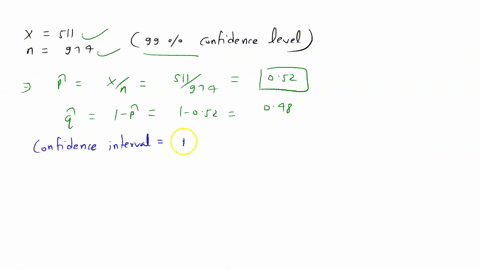 x = 511 ✓
n = 974 ✓ (99 % confidence level)
⇒ p̂ = x/n = 511/974 = 0.52
q̂ = 1-p̂ = 1-0.52 = 0.48
Confidence interval =